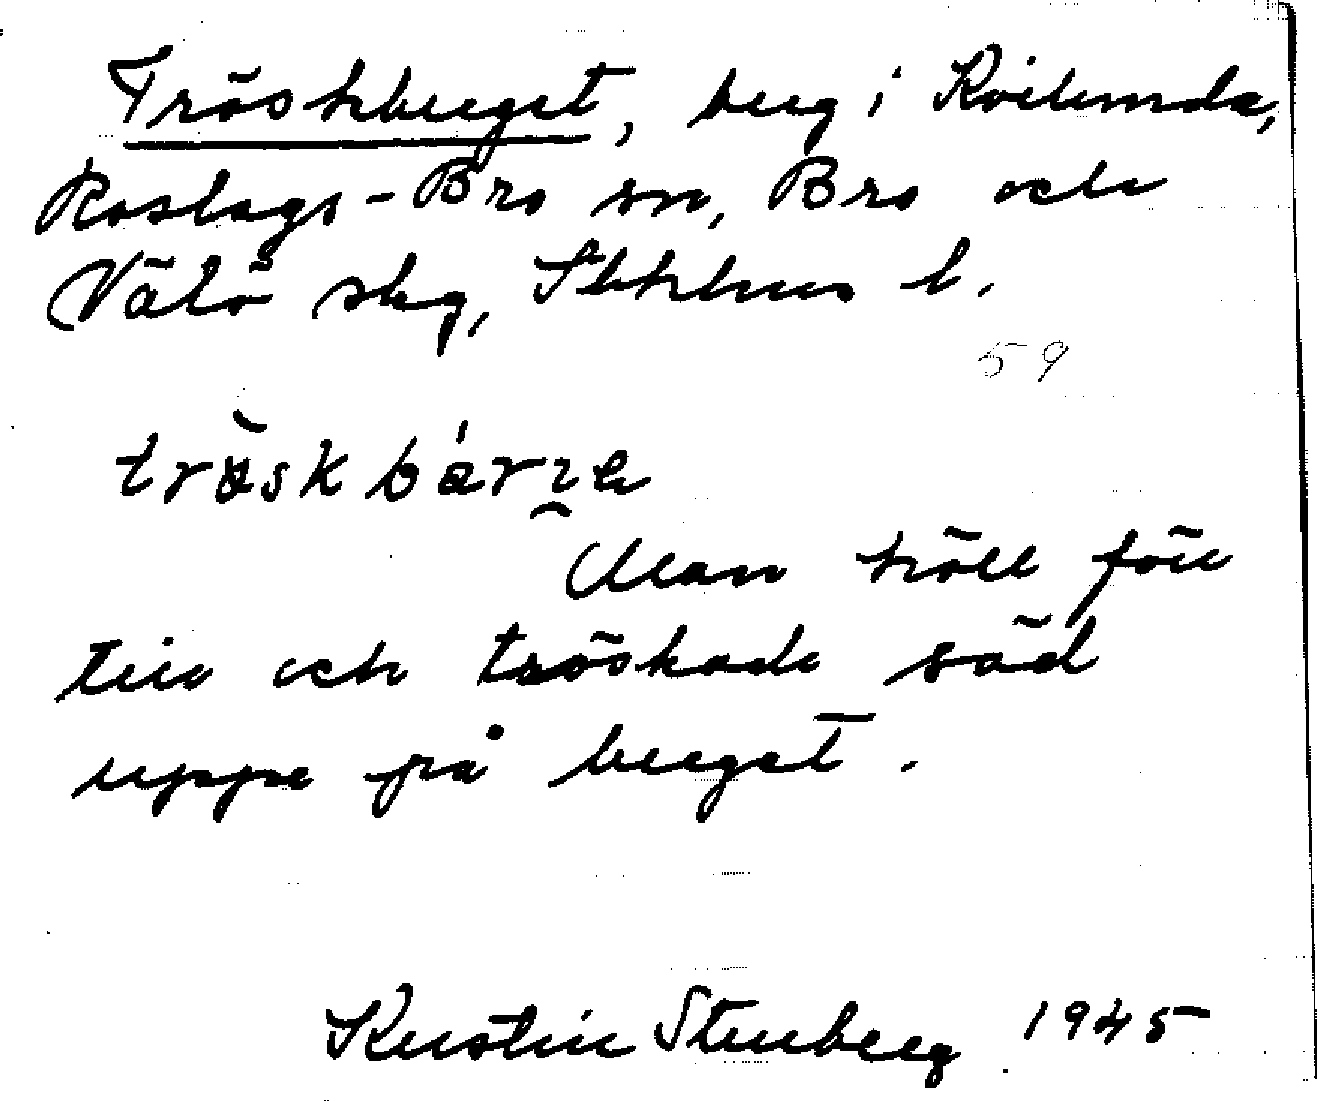 Tröskberget, berg i Kvilunda,
Roslags-Bro sn, Bro och
Vätö skg, Sthlms l.
59
tröskbärje
Man höll före
till och tröskade säd
uppe på berget.
Kerstin Stenberg 1945